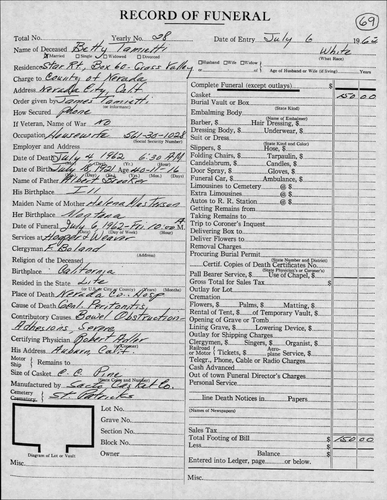 RECORD OF FUNERAL
69
Total No. Yearly No. 28 Date of Entry July 6 1962
Name of Deceased Betty Tamietti White
Married Single Widowed Divorced (What Race)
Residence Star Rt. Box 60- Grass Valley Husband Wife Widow
Age of Husband or Wife (if living) Years
Charge to County of Nevada
Address Nevada City, Calif
Order given by James Tamietti
How Secured Phone
If Veteran, Name of War No
Occupation Housewife 561-30-1028
(Social Security Number)
Employer and Address
Date of Death July 4, 1962 6:30 AM
Date of Birth July 18, 1921 Age 40-11-16
Name of Father
His Birthplace Ill
Maiden Name of Mother Helena
Her Birthplace Montana
Date of Funeral July 6, 1962-Fri. 10:00 AM
Services at Hooper & Weaver
Clergyman F. Boland
(Address)
Religion of the Deceased
Birthplace California
Resided in the State Life
Place of Death Nevada Co. Hosp
Cause of Death Genl. Peritonitis
Contributory Causes Bowel Obstruction-
Adhesions, Severe
Certifying Physician Robert Adler
His Address Auburn, Calif
Motor
Ship Remains to
Size of Casket C.C. Pine
(State Color and Number)
Manufactured by Casket Co.
Cemetery
Crematory St. Patricks
Lot No.
Grave No.
Section No.
Block No.
Owner
Diagram of Lot or Vault
Misc.
Complete Funeral (except outlays) $
Casket 150 00
Burial Vault or Box
(State Kind)
Embalming Body
(Name of Embalmer)
Barber, $ Hair Dressing, $
Dressing Body, $ Underwear, $
Suit or Dress
(State Kind and Color)
Slippers, $ Hose, $
Folding Chairs, $ Tarpaulin, $
Candelabrum, $ Candles, $
Door Spray, $ Gloves, $
Funeral Car, $ Ambulance, $
Limousines to Cemetery @ $
Extra Limousines @ $
Autos to R. R. Station @ $
Getting Remains from
Taking Remains to
Trip to Coroner's Inquest
Delivering Box to
Deliver Flowers to
Removal Charges
Procuring Burial Permit
(State Number and District)
Certif. Copies of Death Certificates No.
(State Physician's or Coroner's)
Pall Bearer Service, $ Use of Chapel, $
Gross Total for Sales Tax $
Outlay for Lot
Cremation
Flowers, $ Palms, $ Matting, $
Rental of Tent, $ of Temporary Vault, $
Opening of Grave or Tomb
Lining Grave, $ Lowering Device, $
Outlay for Shipping Charges
Clergymen, $ Singers, $ Organist, $
Railroad or Motor Tickets, $ Aeroplane Service, $
Telegr., Phone, Cable or Radio Charges
Cash Advanced
Out of town Funeral Director's Charges
Personal Service
line Death Notices in Papers
(Names of Newspapers)
Sales Tax
Total Footing of Bill $ 150 00
Less $
Balance $
Entered into Ledger, page or below.
Misc.